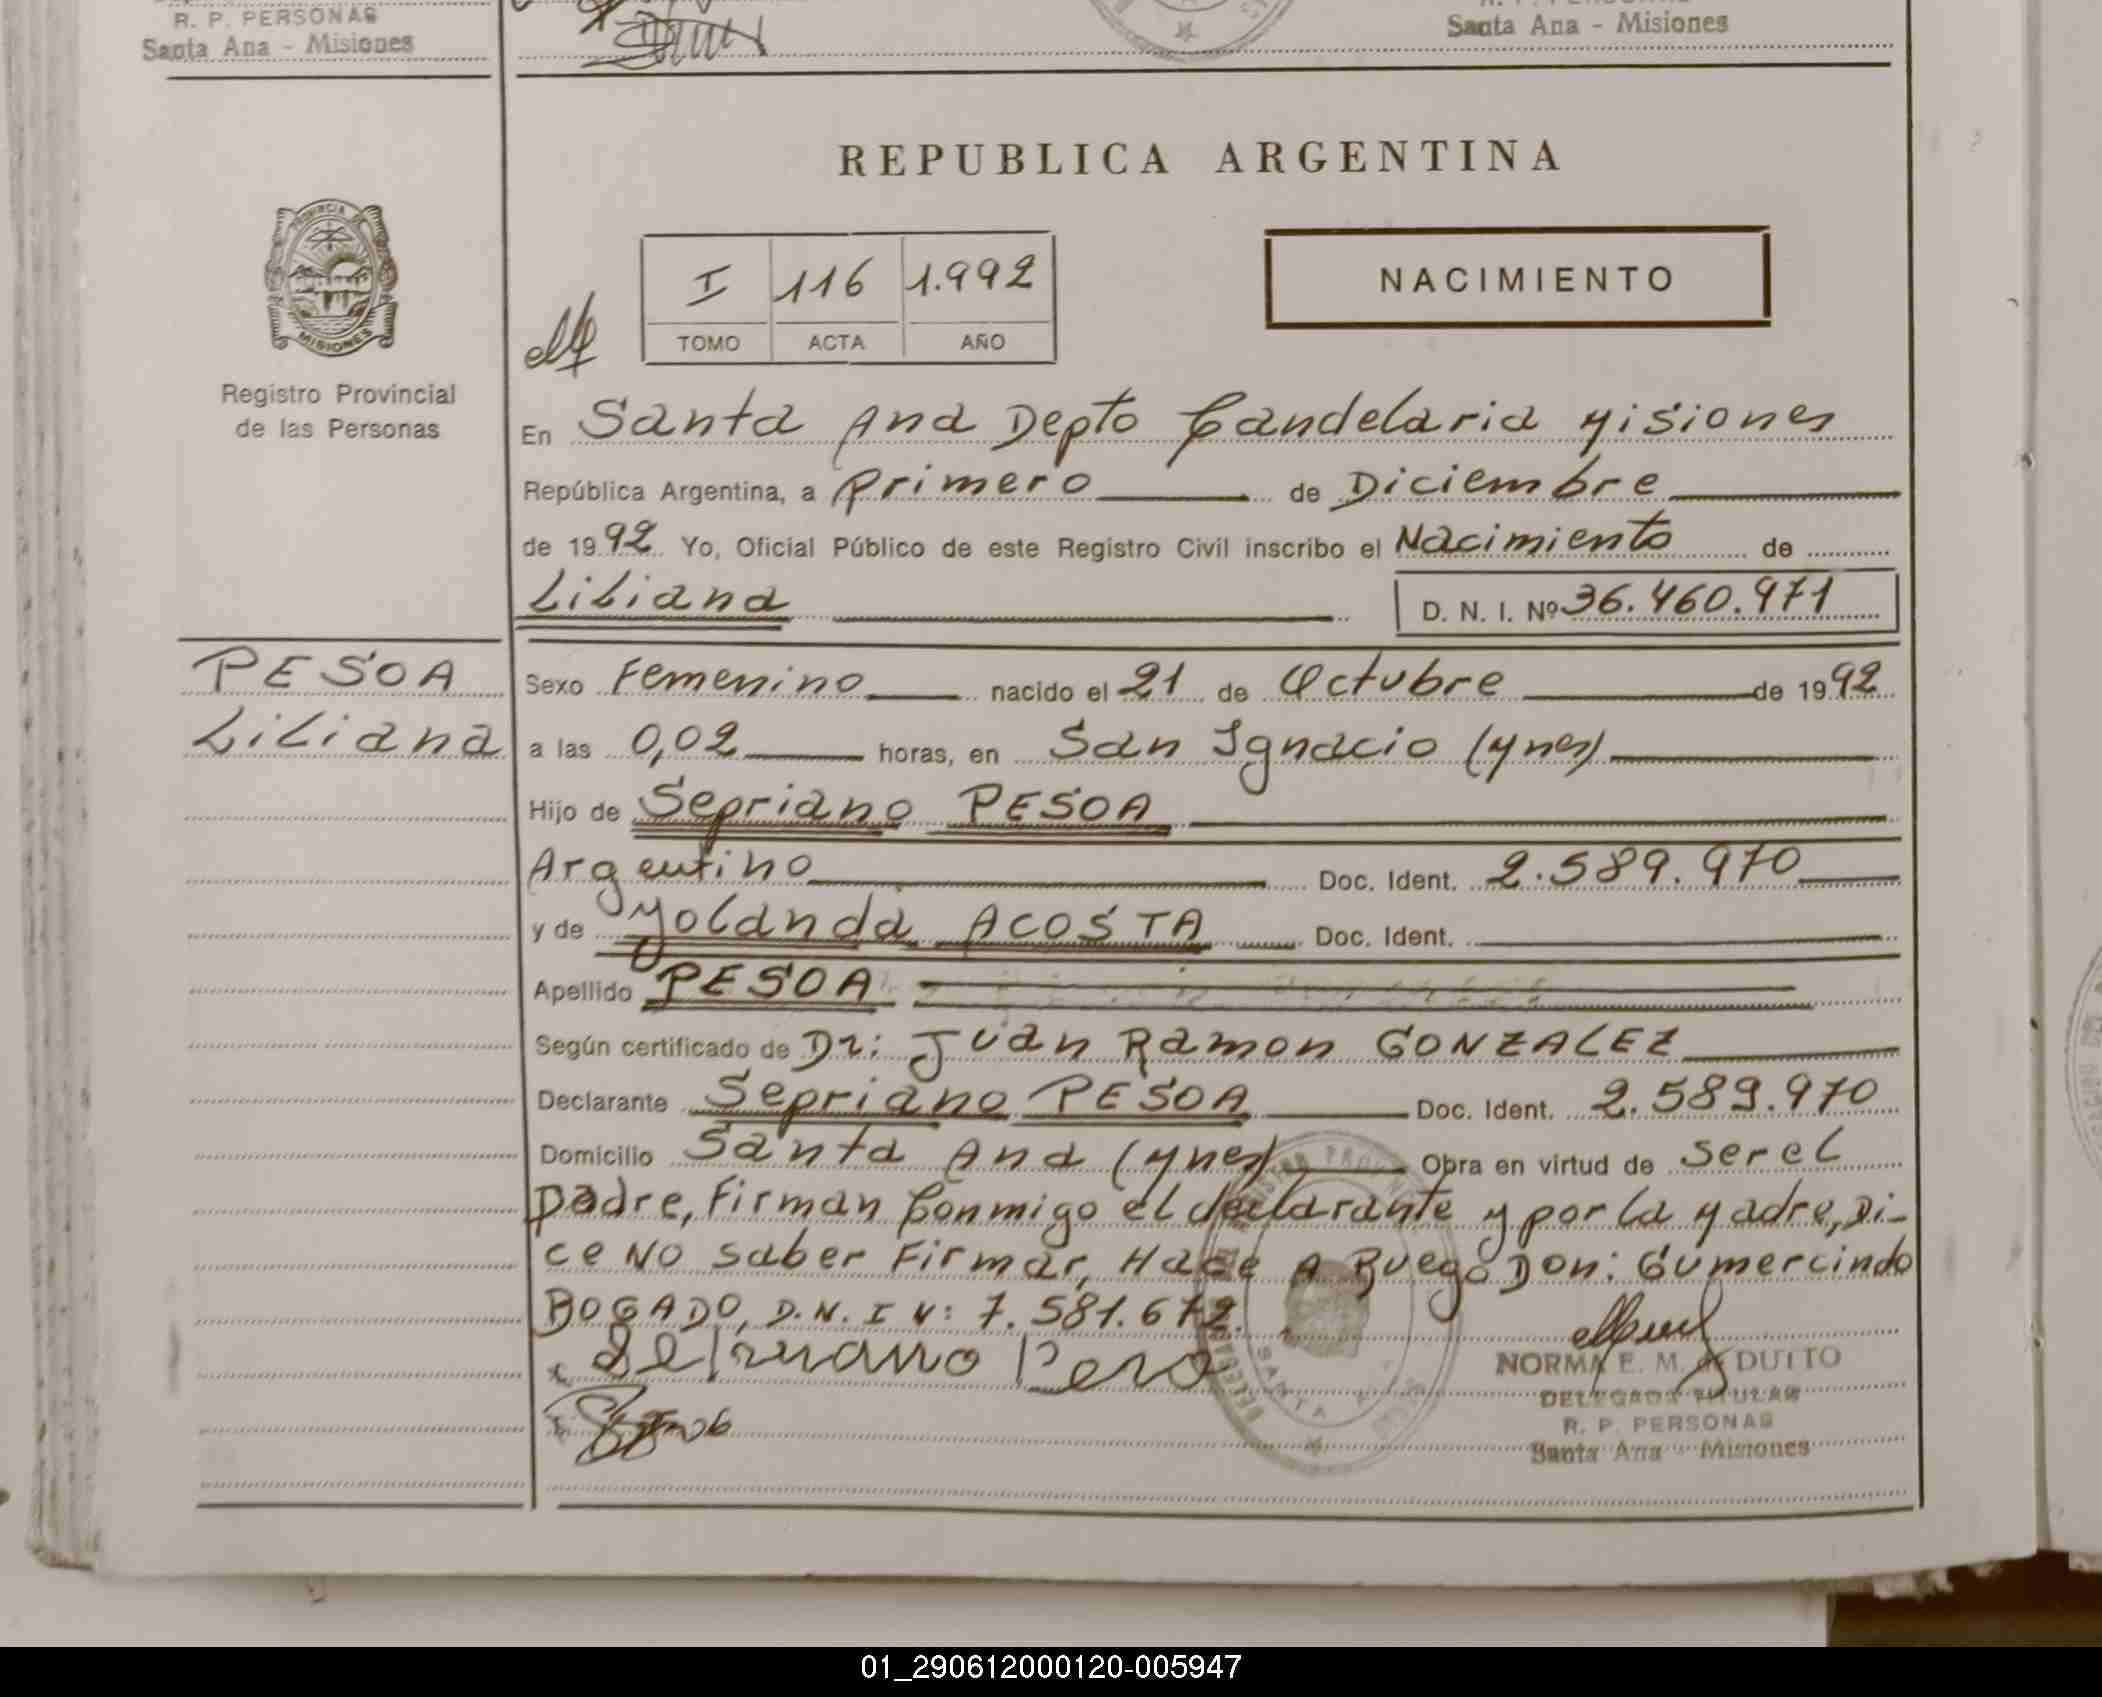 R. P. PERSONAS
Santa Ana - Misiones
Santa Ana - Misiones
REPUBLICA ARGENTINA
PROVINCIA DE
MISIONES
Registro Provincial
de las Personas
I 116 1.992
TOMO ACTA AÑO
NACIMIENTO
En Santa Ana Depto Candelaria Misiones
República Argentina, a primero de Diciembre
de 1992 Yo, Oficial Público de este Registro Civil inscribo el Nacimiento de
Liliana D. N. I. Nº 36.460.971
PESOA
Liliana
Sexo Femenino nacido el 21 de Octubre de 1992
a las 0,02 horas, en San Ignacio (Mnes)
Hijo de Sepriano PESOA
Argentino Doc. Ident. 2.589.970
y de Yolanda ACOSTA Doc. Ident.
Apellido PESOA
Según certificado de Dr: Juan Ramon GONZALEZ
Declarante Sepriano PESOA Doc. Ident. 2.589.970
Domicilio Santa Ana (Mnes) Obra en virtud de ser el
padre, Firman Conmigo el declarante y por la Madre, Di-
ce NO saber Firmar, Hace A Ruego Don: Gumercindo
BOGADO, D.N.I N: 7.581.672.
NORMA E. M. de DUTTO
DELEGADA TITULAR
R. P. PERSONAS
Santa Ana - Misiones
01_290612000120-005947